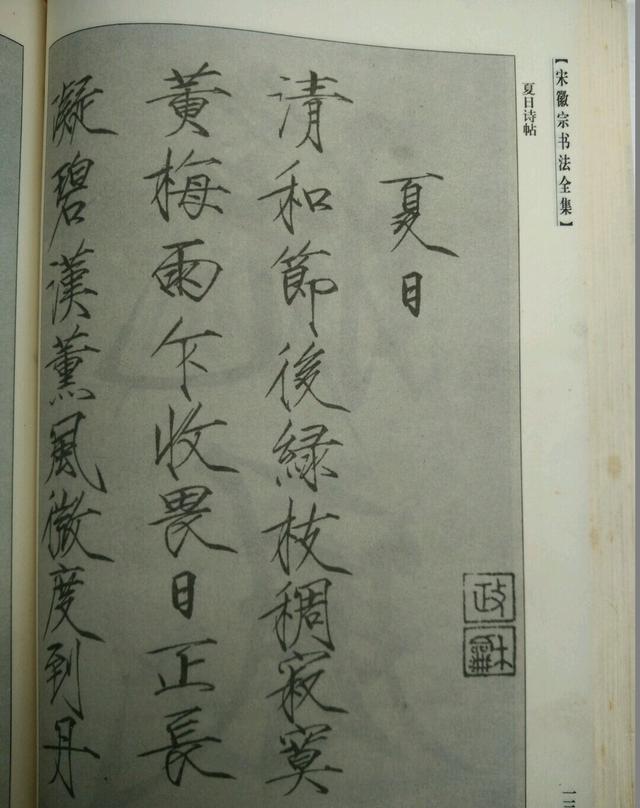 【宋徽宗书法全集】
夏日诗帖
夏日
清和節後緑枝稠寂寞
黄梅雨乍收畏日正長
凝碧漢薰風微度到丹
政
龢